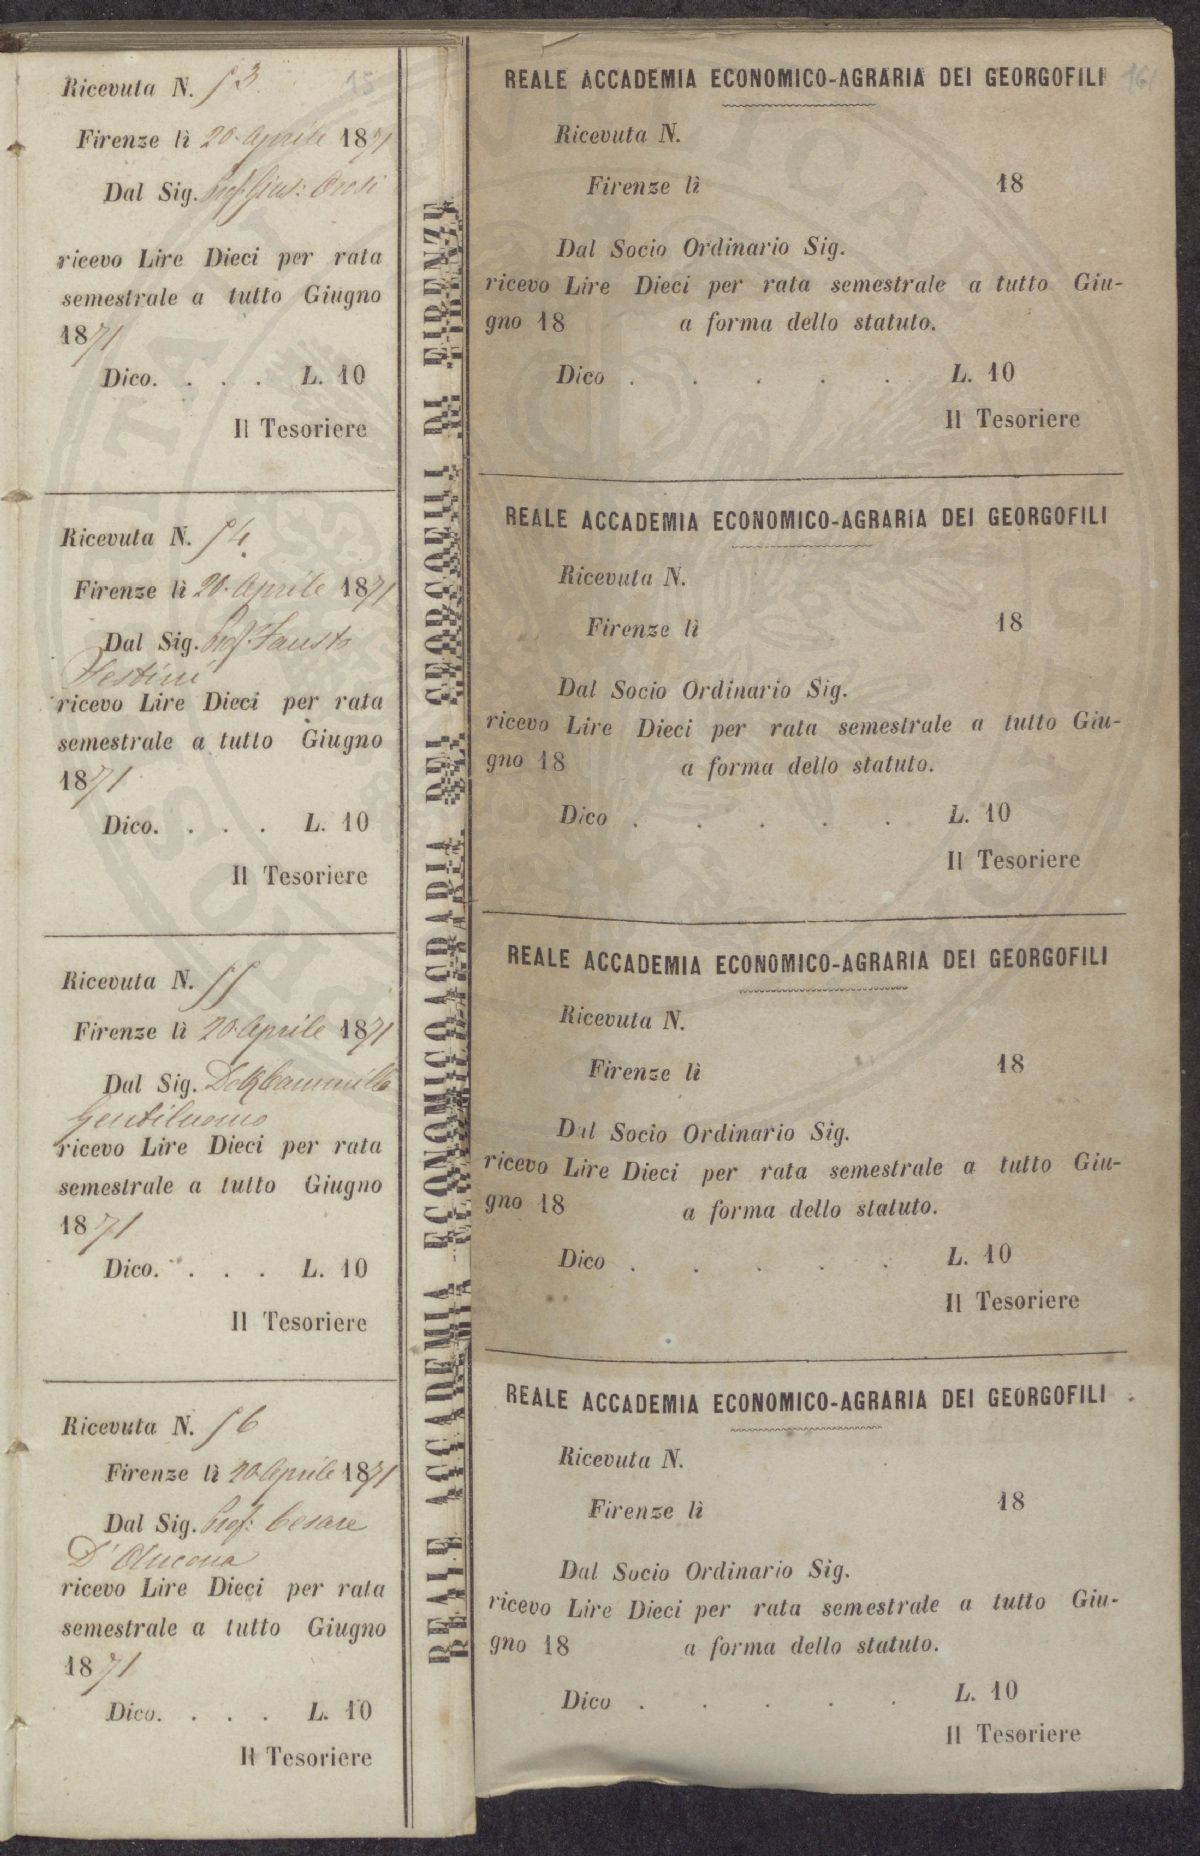 Ricevuta N. 53
15
Firenze lì 20. Aprile 1871
Dal Sig. Prof. Gius: Orosi
ricevo Lire Dieci per rata
semestrale a tutto Giugno
1871
Dico. . . . L. 10
Il Tesoriere
Ricevuta N. 54
Firenze lì 20. Aprile 1871
Dal Sig. Prof. Fausto
Sestini
ricevo Lire Dieci per rata
semestrale a tutto Giugno
1871
Dico. . . . L. 10
Il Tesoriere
Ricevuta N. 55
Firenze lì 20. Aprile 1871
Dal Sig. Dott. Cammillo
Gentiluomo
ricevo Lire Dieci per rata
semestrale a tutto Giugno
1871
Dico. . . . L. 10
Il Tesoriere
Ricevuta N. 56
Firenze lì 20 Aprile 1871
Dal Sig. Prof: Cesare
D'Ancona
ricevo Lire Dieci per rata
semestrale a tutto Giugno
1871
Dico. . . . L. 10
Il Tesoriere
REALE ACCADEMIA ECONOMICO AGRARIA DEI GEORGOFILI DI FIRENZE
REALE ACCADEMIA ECONOMICO-AGRARIA DEI GEORGOFILI
16
Ricevuta N.
Firenze lì 18
Dal Socio Ordinario Sig.
ricevo Lire Dieci per rata semestrale a tutto Giu-
gno 18 a forma dello statuto.
Dico . . . . . L. 10
Il Tesoriere
REALE ACCADEMIA ECONOMICO-AGRARIA DEI GEORGOFILI
Ricevuta N.
Firenze lì 18
Dal Socio Ordinario Sig.
ricevo Lire Dieci per rata semestrale a tutto Giu-
gno 18 a forma dello statuto.
Dico . . . . . L. 10
Il Tesoriere
REALE ACCADEMIA ECONOMICO-AGRARIA DEI GEORGOFILI
Ricevuta N.
Firenze lì 18
Dal Socio Ordinario Sig.
ricevo Lire Dieci per rata semestrale a tutto Giu-
gno 18 a forma dello statuto.
Dico . . . . . L. 10
Il Tesoriere
REALE ACCADEMIA ECONOMICO-AGRARIA DEI GEORGOFILI
Ricevuta N.
Firenze lì 18
Dal Socio Ordinario Sig.
ricevo Lire Dieci per rata semestrale a tutto Giu-
gno 18 a forma dello statuto.
Dico . . . . . L. 10
Il Tesoriere